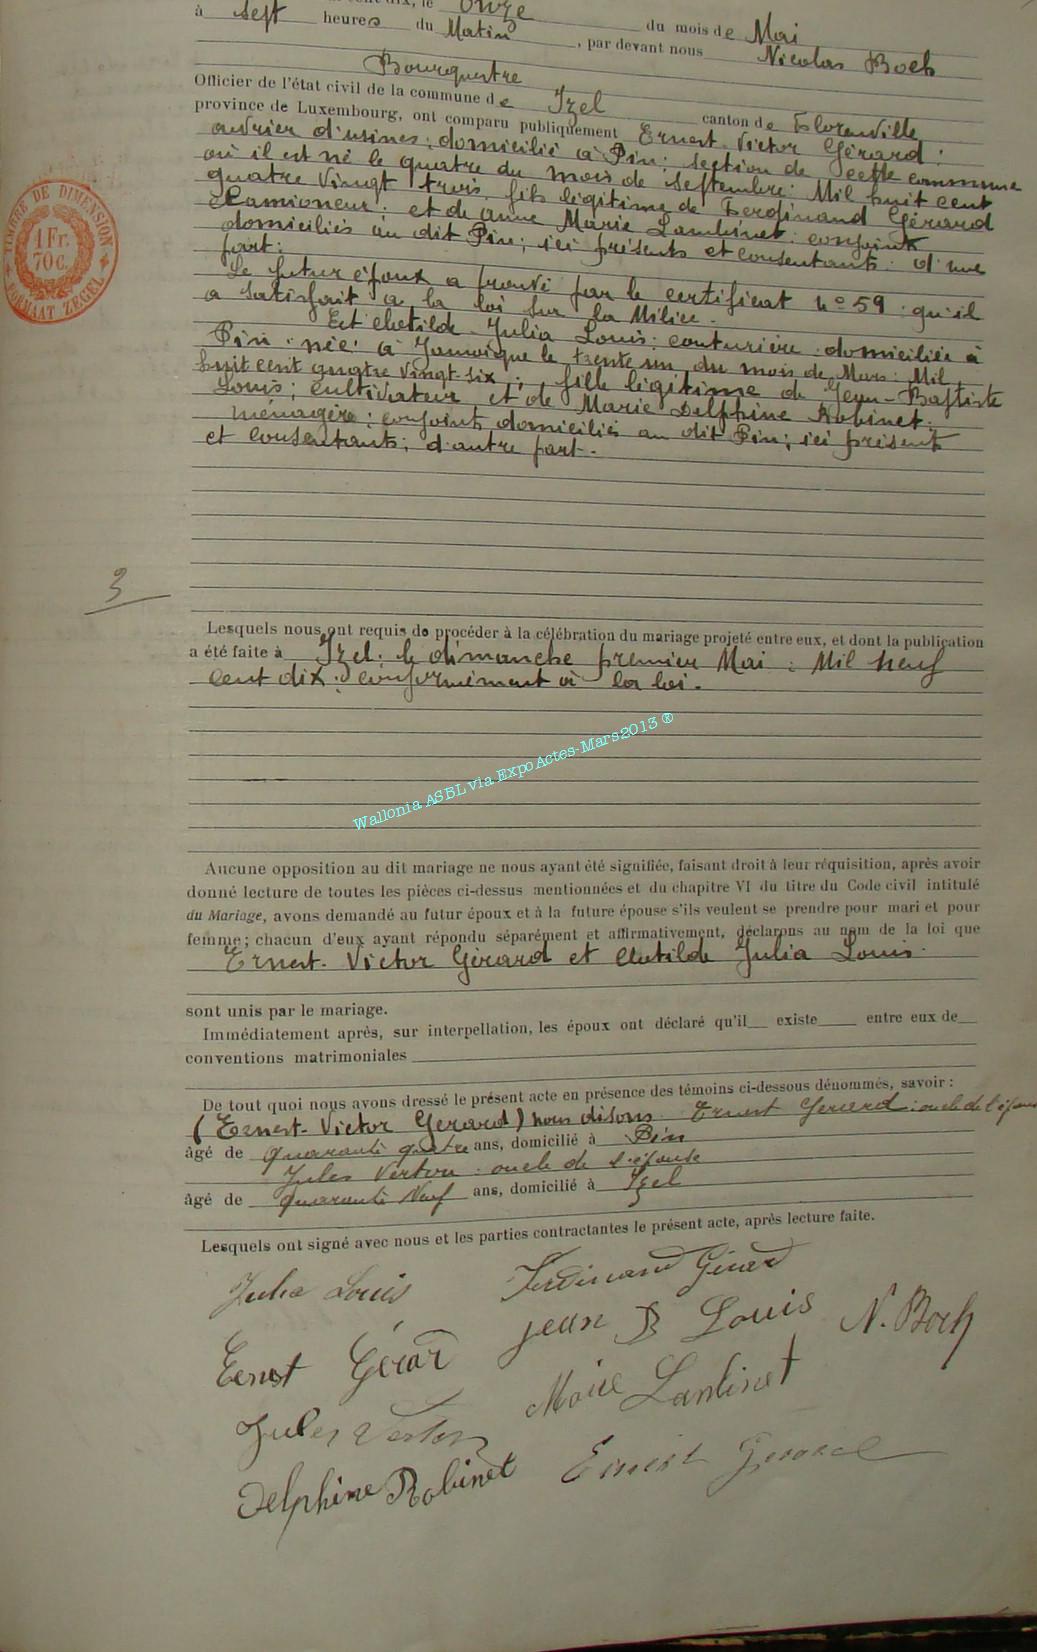 cent dix, le Onze du mois de Mai
à sept heures du Matin, par devant nous Nicolas Boch
Bourgmestre
Officier de l'état civil de la commune de Izel canton de Florenville
province de Luxembourg, ont comparu publiquement Ernest Victor Gérard;
ouvrier d'usines; domicilié à Pin; section de cette commune
où il est né le quatre du mois de Septembre; Mil huit cent
quatre Vingt trois, fils légitime de Ferdinand Gérard
Camioneur; et de Marie Lambinet; conjoints
domiciliés au dit Pin; ici présents et consentants; d'une
part;
Le futur époux a prouvé par le certificat no 59 qu'il
a satisfait à la loi sur la Milice.
Et Clotilde Julia Louis; couturière domiciliée à
Pin née à Jamoigne le trente un du mois de Mars; Mil
huit cent quatre Vingt-six; fille légitime de Jean-Baptiste
Louis; cultivateur et de Marie Delphine Robinet;
ménagère; conjoints domiciliés au dit Pin; ici présents
et consentants; d'autre part.
3
Lesquels nous ont requis de procéder à la célébration du mariage projeté entre eux, et dont la publication
a été faite à Izel; le dimanche premier Mai; Mil neuf
cent dix; conformément à la loi.
Wallonia ASBL via ExpoActes-Mars2013 ®
Aucune opposition au dit mariage ne nous ayant été signifiée, faisant droit à leur réquisition, après avoir
donné lecture de toutes les pièces ci-dessus mentionnées et du chapitre VI du titre du Code civil intitulé
du Mariage, avons demandé au futur époux et à la future épouse s'ils veulent se prendre pour mari et pour
femme; chacun d'eux ayant répondu séparément et affirmativement, déclarons au nom de la loi que
Ernest Victor Gérard et Clotilde Julia Louis
sont unis par le mariage.
Immédiatement après, sur interpellation, les époux ont déclaré qu'il existe entre eux de
conventions matrimoniales
De tout quoi nous avons dressé le présent acte en présence des témoins ci-dessous dénommés, savoir:
(Ernest Victor Gerard) nous disons Ernest Gerard; oncle de l'époux
âgé de quarante quatre ans, domicilié à Pin
Jules Verton; oncle de l'épouse
âgé de quarante Neuf ans, domicilié à Izel
Lesquels ont signé avec nous et les parties contractantes le présent acte, après lecture faite.
Julia Louis Ferdinand Gérard
Ernest Gérard Jean B Louis N. Boch
Jules Verton Marie Lambinet
Delphine Robinet Ernest Gerard
TIMBRE DE DIMENSION
1 Fr.
70 c.
FORMAAT ZEGEL